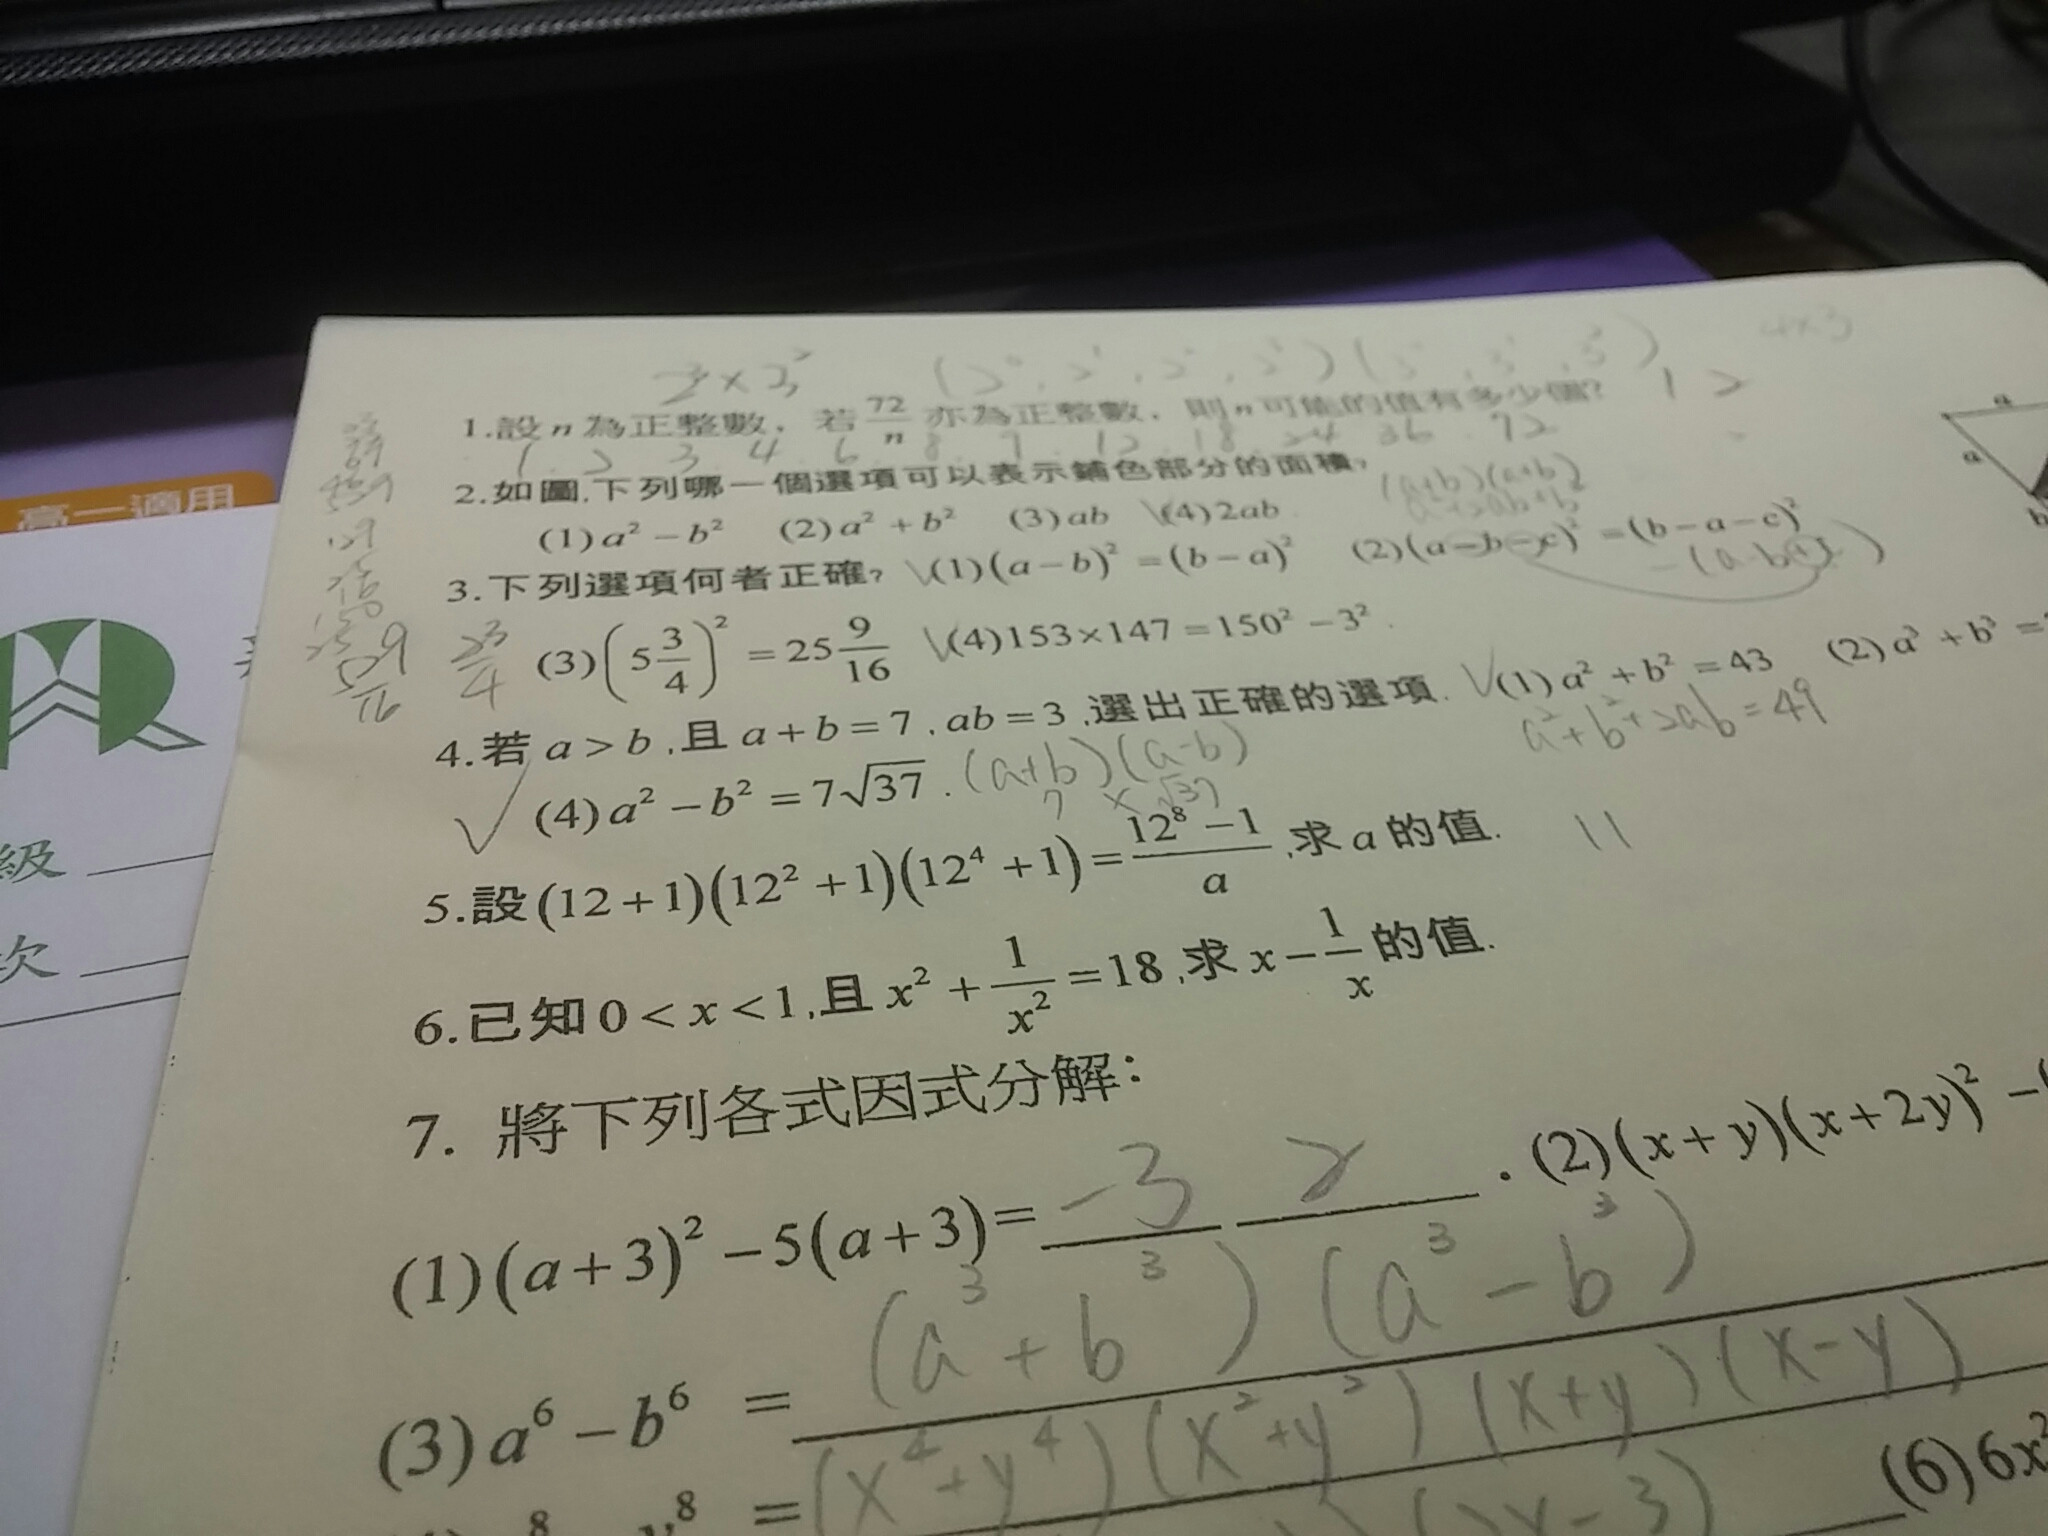 2³×3² (2⁰, 2¹, 2², 2³)(3⁰, 3¹, 3²) 4×3
1.設 n 為正整數, 若 72/n 亦為正整數, 則 n 可能的值有多少個? 12
1 2 3 4 6 8 9 12 18 24 36 72
2.如圖,下列哪一個選項可以表示鋪色部分的面積?
(a+b)(a+b)
a²+2ab+b²
(1)a²−b² (2)a²+b² (3)ab (4)2ab
3.下列選項何者正確? (1)(a−b)²=(b−a)² (2)(a−b−c)²=(b−a−c)²
(3)(5 3/4)²=25 9/16 (4)153×147=150²−3².
23/4
529/16
4.若 a>b,且 a+b=7,ab=3,選出正確的選項. (1)a²+b²=43 (2)a³+b³=
a²+b²+2ab=49
(4)a²−b²=7√37. (a+b)(a-b)
7 × √37
5.設(12+1)(12²+1)(12⁴+1)=(12⁸−1)/a,求 a 的值. 11
6.已知0<x<1,且 x²+1/x²=18,求 x−1/x 的值.
7. 將下列各式因式分解:
(1)(a+3)²−5(a+3)= -3 2 . (2)(x+y)(x+2y)²−
(3)a⁶−b⁶ = (a³+b³)(a³-b³)
=(x⁴+y⁴)(x²+y²)(x+y)(x-y)
(6)6x²
高一適用
級
次
a
a
b